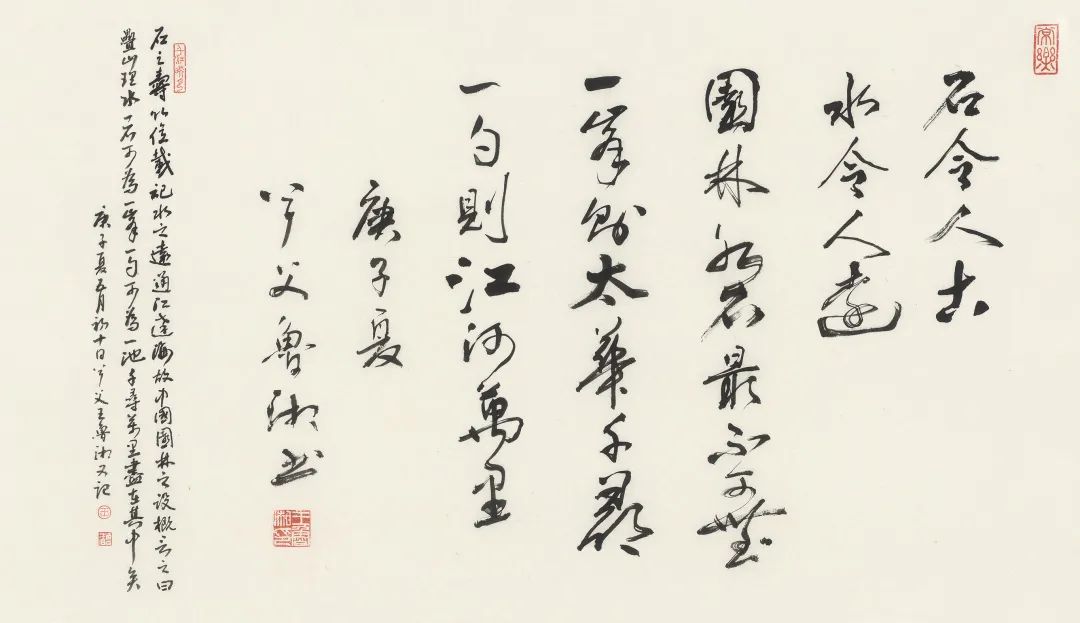 石令人古
水令人遠
園林水石最不可無
一峯則太華千尋
一勺則江河萬里
庚子夏
兮父魯湘书
石之壽以億載記水之遠通江達海故中國園林之設概言之曰
疊山理水一石可為一峯一勺可為一池千尋萬里盡在其中矣
庚子夏五月初十日兮父王魯湘又記
常樂